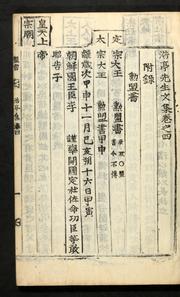 浩亭先生文集卷之四
附錄
勳盟書
定宗大王 勳盟書
太宗大王 勳盟書甲申
謹歲次甲申十一月己亥朔十六日甲寅
朝鮮國王臣
謹率開國定社佐命功臣等敢
昭告于
皇天上帝
宗廟